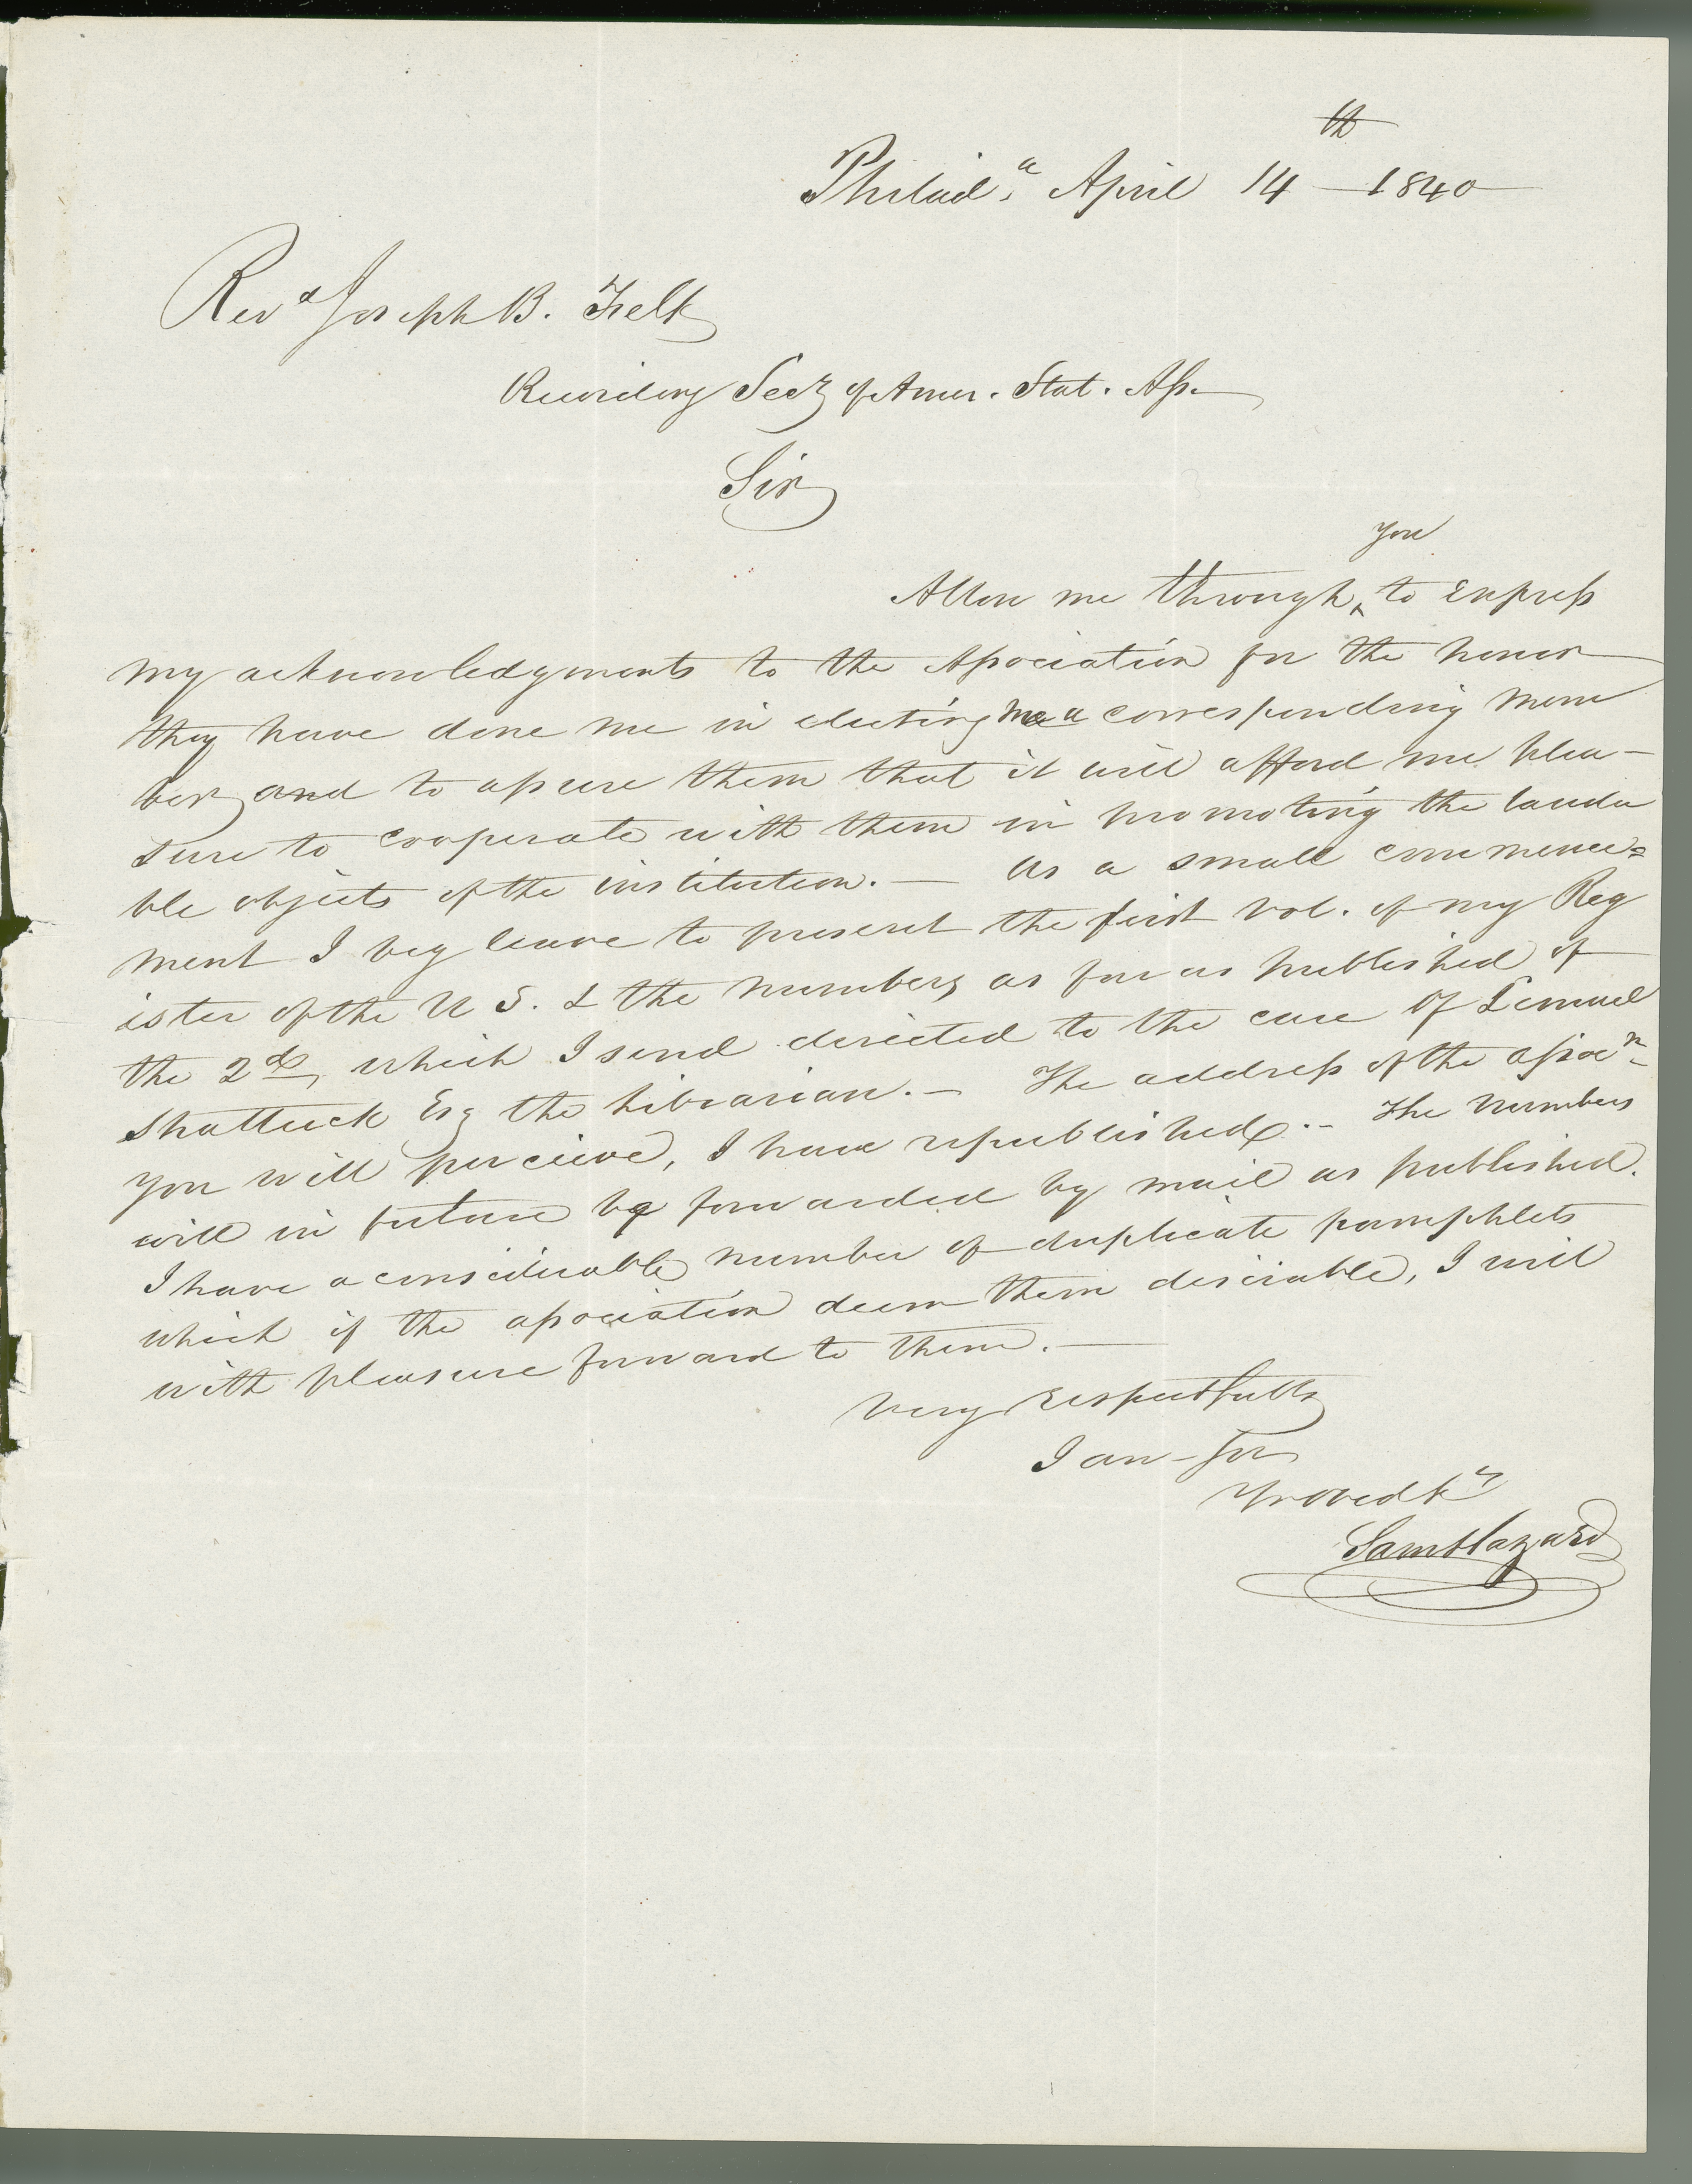 Philad.ª April 14th 1840
Revd Joseph B. Felt
Recording Secy of Amer. Stat. Ass.
Sir
you
Allow me through ‸ to express
my acknowledgments to the Association for the honor
they have done me in electing me a corresponding mem
ber, and to assure them that it will afford me plea-
sure to cooperate with them in promoting the lauda
ble objects of the institution. — As a small commence=
ment I beg leave to present the first vol. of my Reg
ister of the U S. & the numbers as far as published of
the 2d, which I send directed to the care of Lemuel
Shattuck Esq the Librarian. — The address of the assocn
you will perceive, I have republished. — The numbers
will in future be forwarded by mail as published.
I have a considerable number of duplicate pamphlets
which if the association deem them desirable, I will
with pleasure forward to them. —
Very respectfully
I am Sir
Yr obed St
Saml Hazard